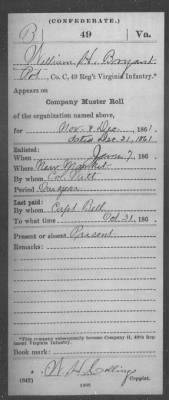 (CONFEDERATE.)
B 49 Va.
William H. Bryant
Pvt, Co. C, 49 Reg't Virginia Infantry.*
Appears on
Company Muster Roll
of the organization named above,
for Nov. & Dec., 1861.
dated Dec. 31, 1861
Enlisted:
When June 7, 186 .
Where New Market
By whom Col.
Period
Last paid:
By whom Capt Bell
To what time Oct. 31, 186 .
Present or absent Present
Remarks:
*This company subsequently became Company H, 49th Regiment Virginia Infantry.
Book mark:
(642) Copyist.